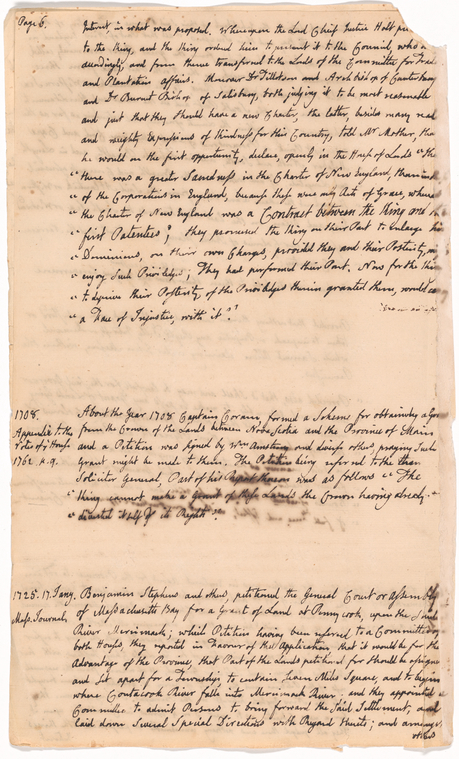 Page 6.
Interest, in what was proposed. Whereupon the Lord Chief Justice Holt
to the King, and the King ordered him to present it to the Council, who
accordingly, and from thence transferred to the Lords of the Committee for Trade
and Plantation affairs. Moreover Dr Tillotson and Archbishop of Canterbury
and Dr Burnet Bishop of Salisbury, both judging it to be most reasonable
and just that they should have a new Charter, the latter, besides many real
and weighty Expressions of kindness for this Country, told Mr. Mother,
he would on the first opportunity, declare, openly in the House of Lords "
" there was a greater Sacredness in the Charter of New England, than in
" of the Corporations in England, because those were only Acts of Grace, whereas
" the Charter of New England was a Contract between the King and
" first Patentees; they promised the King on their Part to enlarge his
" Dominions, on their own Charges, provided they and their Posterity,
" enjoy such Priviledges; They had performed their Part. Now for the King
" to deprive their Posterity, of the Priviledges therein granted them, would
" a Face of Injustice, with it".
1708.
Appendix to the
Votes of ye House
1762. p. 9.
About the Year 1708 Captain Coram formed a Scheme for obtaining a
from the Crown of the Lands between Nova Scotia and the Province of Main
and a Petition was signed by Wm Armstrong and divers others, praying Such
Grant might be made to them. The Petition being referred to the then
Solicitor General, Part of his Report thereon was as follows "The
" King cannot make a Grant of these Lands the Crown having already
" divested itself of its Rights".
1725. 17. Jany.
Mass. Journals,
Benjamin Stephens and others, petitioned the General Court or Assembly
of Massachusetts Bay for a Grant of Land at Pennycook, upon the said
River Merrimack; which Petition having been referred to a Committee of
both Houses, they reported in Favour of the Application, that it would be for the
Advantage of the Province, that Part of the Lands petitioned for should be assigned
and set apart for a Township to contain Seven Miles Square, and to begin
where Contacook River falls into Merrimack River and they appointed a
Committee to admit Persons to bring forward the said Settlement, and
laid down Several Special Directions with Regard thereto; and amongst
others